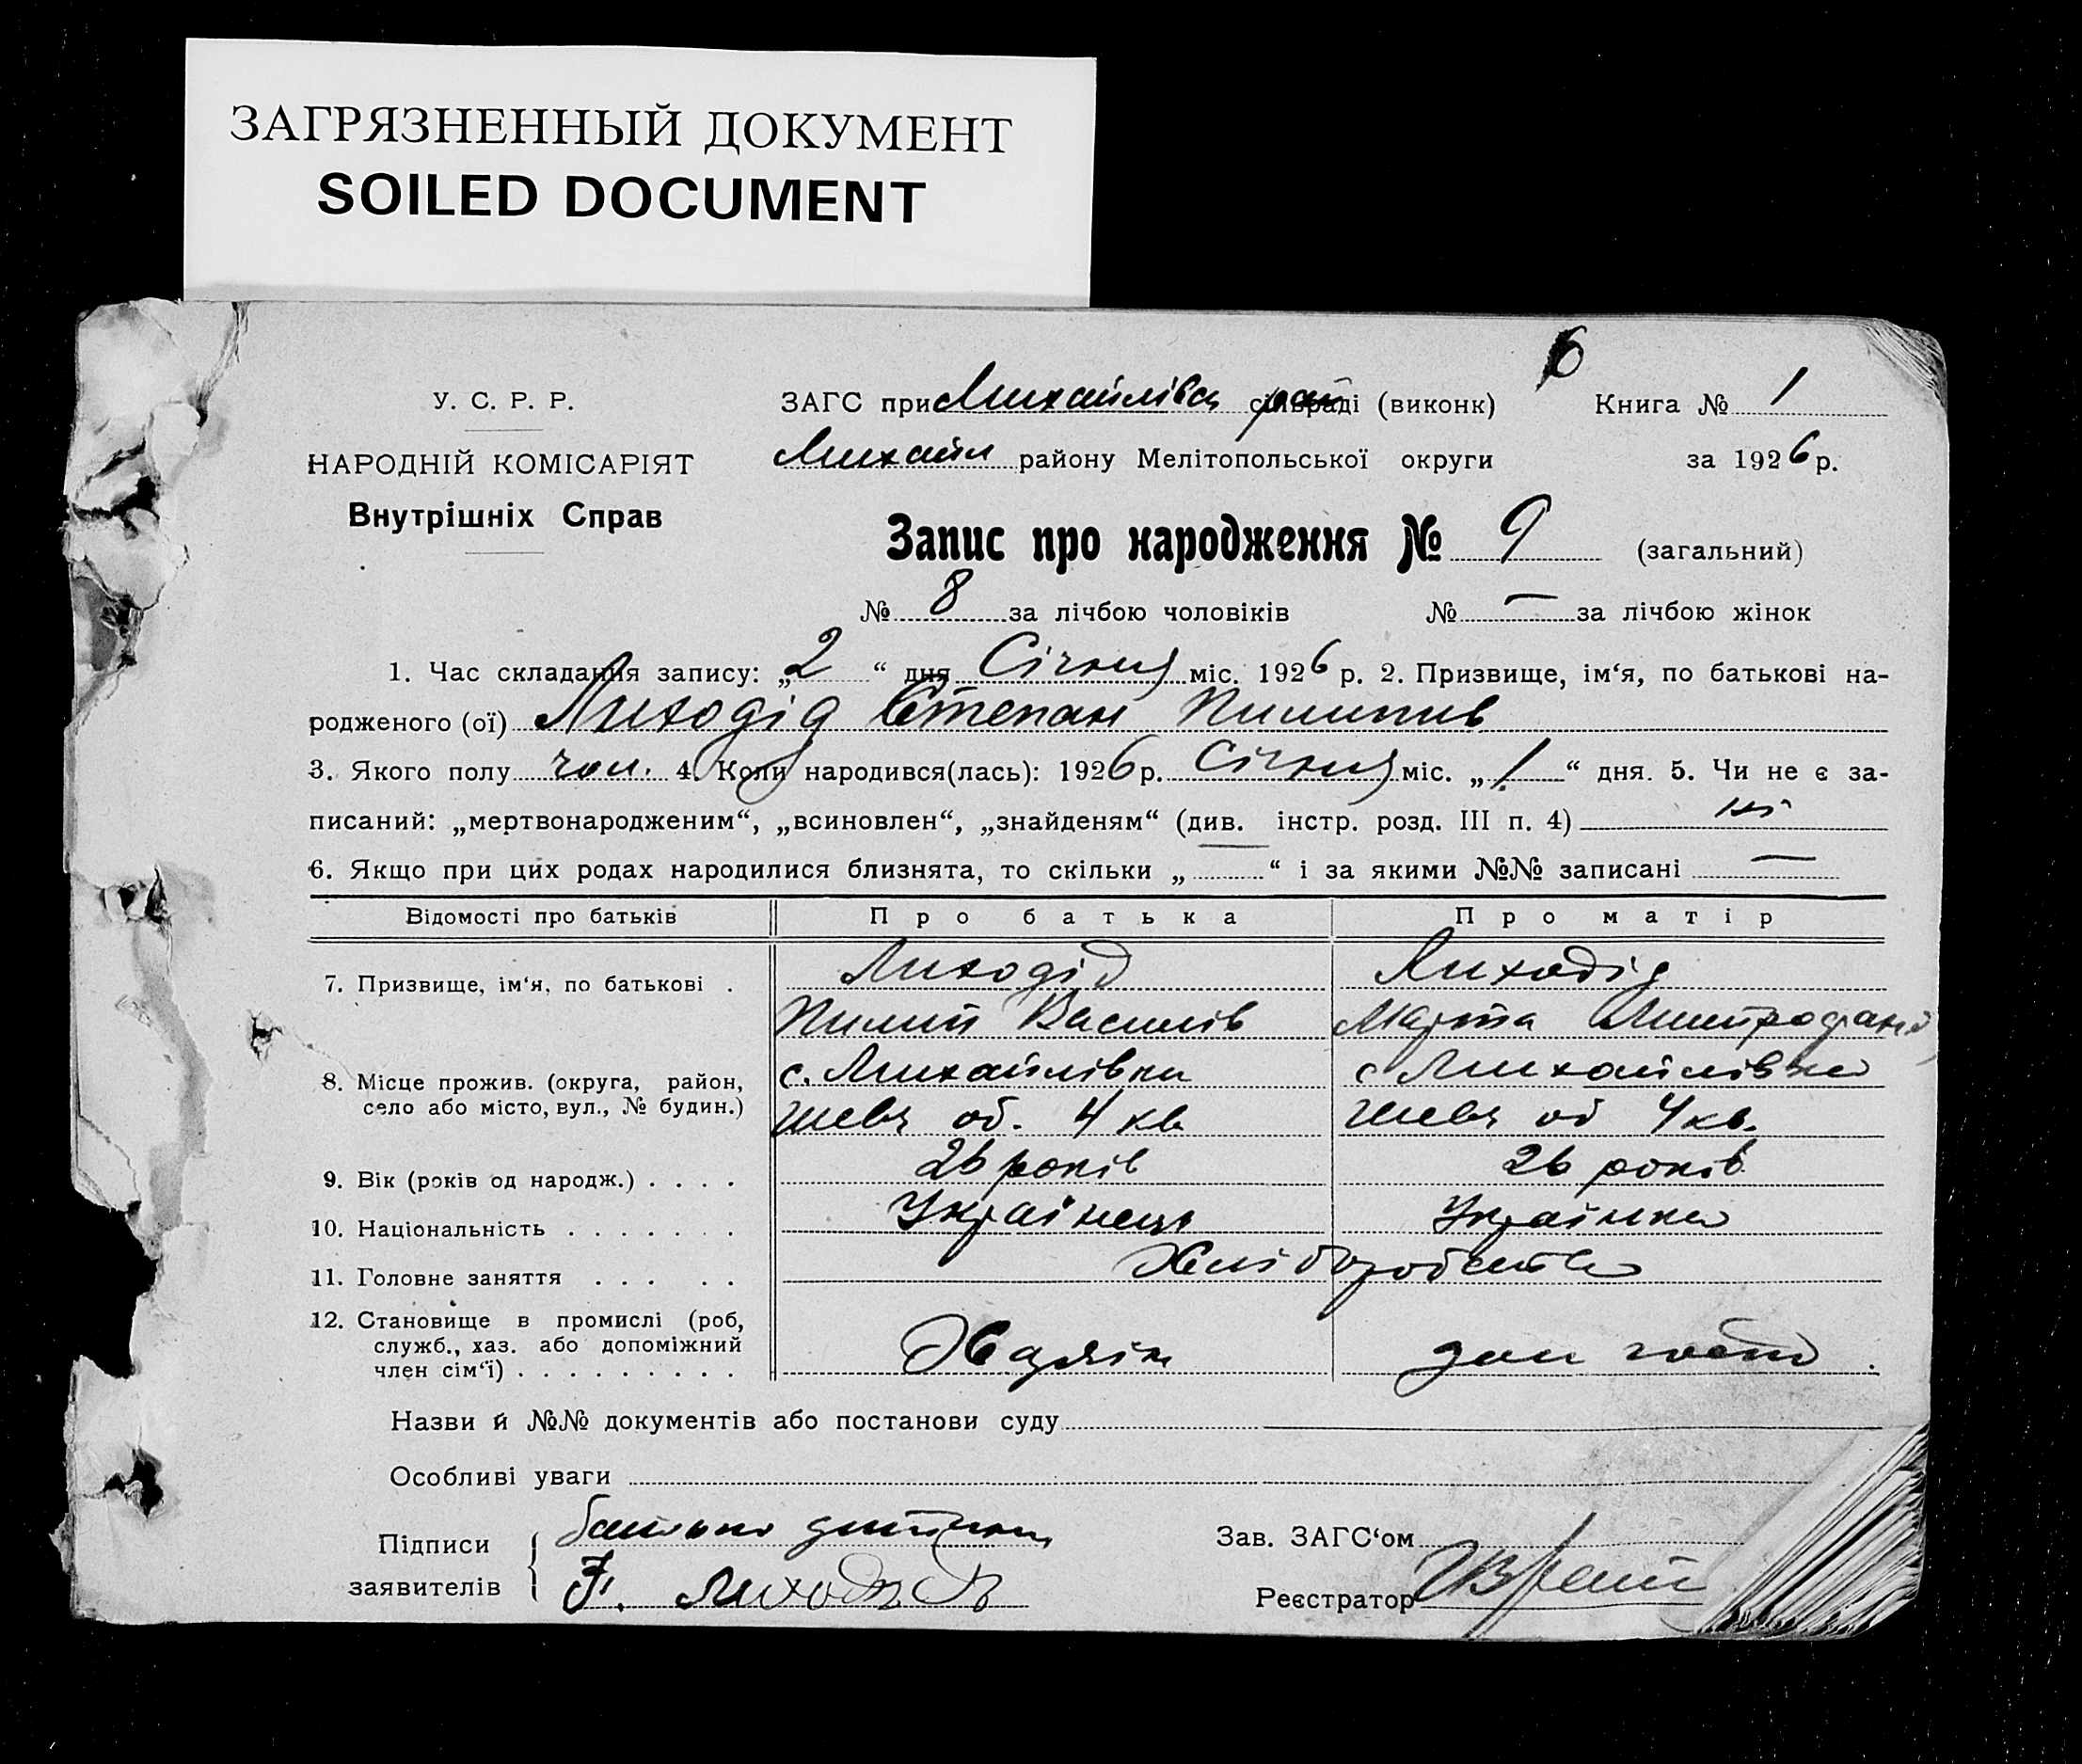 ЗАГРЯЗНЕННЫЙ ДОКУМЕНТ
SOILED DOCUMENT
6
У. С. Р. Р.
ЗАГС при Михайлівск рай сільраді (виконк)
Книга № 1
НАРОДНІЙ КОМІСАРІЯТ
Михайл району Мелітопольської округи
за 1926 р.
Внутрішніх Справ
Запис про народження № 9 (загальний)
№ 8 за лічбою чоловіків № — за лічбою жінок
1. Час складання запису: „2“ дня Січня міс. 1926 р. 2. Призвище, ім‘я, по батькові на-
родженого (ої) Лиходід Степан Пилипів
3. Якого полу чол. 4. Коли народився(лась): 1926 р. Січня міс. „1“ дня. 5. Чи не є за-
писаний: „мертвонародженим“, „всиновлен“, „знайденям“ (див. інстр. розд. III п. 4) ні
6. Якщо при цих родах народилися близнята, то скільки „—“ і за якими №№ записані —
Відомості про батьків Про батька Про матір
7. Призвище, ім‘я, по батькові . Лиходід Лиходід
Пилип Василів Марта Митрофанів
8. Місце прожив. (округа, район, с. Михайлівки с Михайлівки
село або місто, вул., № будин.) об. 4 кв об 4 кв.
9. Вік (років од народж.) . . . . 26 років 26 років
10. Національність . . . . . . . Українець Українка
11. Головне заняття . . . . . Хліборобство
12. Становище в промислі (роб,
служб., хаз. або допоміжний
член сім‘ї) . . . . . . . . . Хазяїн доп
Назви й №№ документів або постанови суду
Особливі уваги
Підписи батько дитини
заявителів Лиходід
Зав. ЗАГС‘ом
Реєстратор